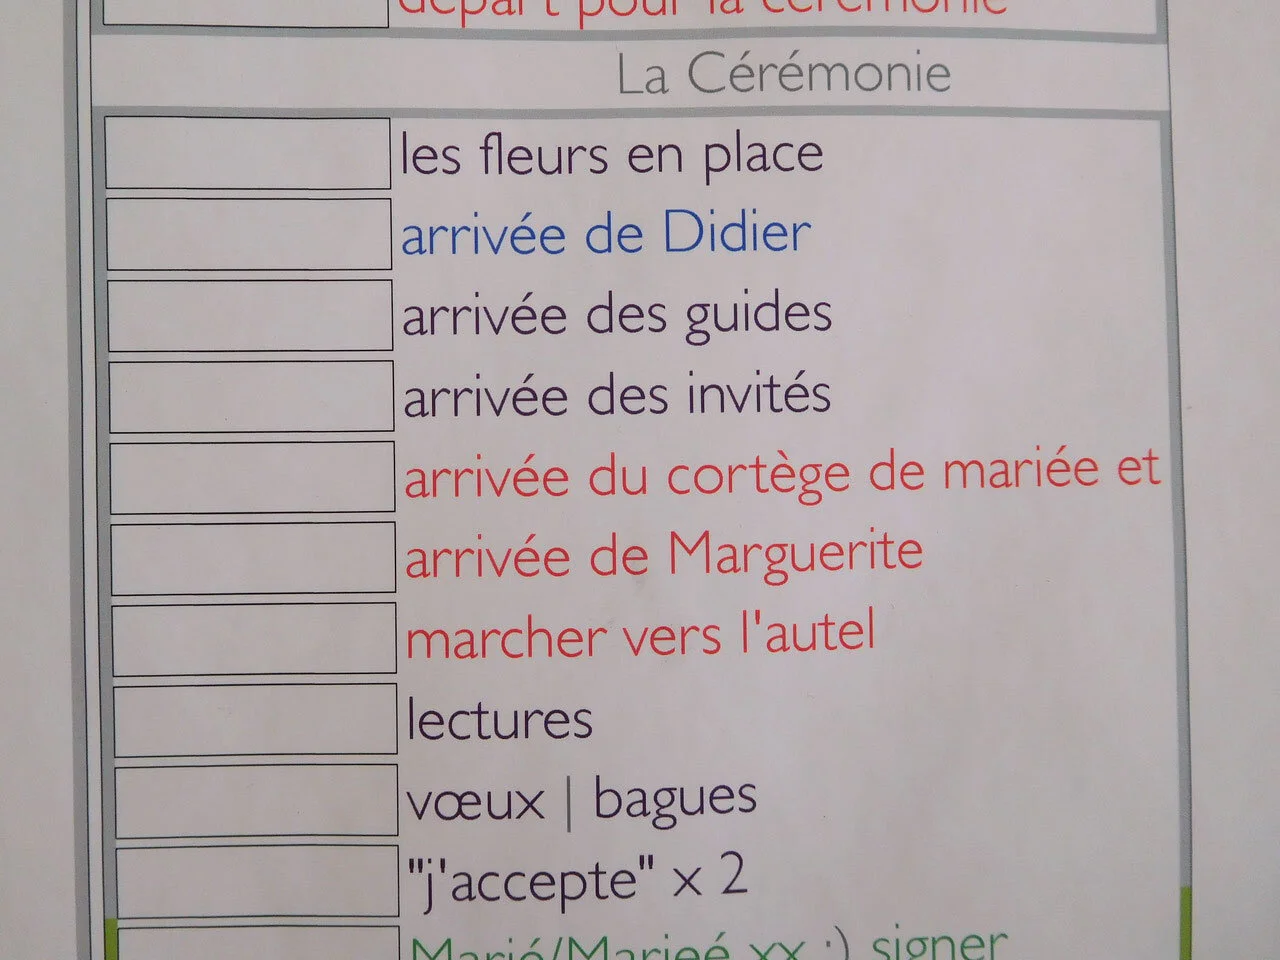 départ pour la cérémonie
La Cérémonie
les fleurs en place
arrivée de Didier
arrivée des guides
arrivée des invités
arrivée du cortège de mariée et
arrivée de Marguerite
marcher vers l'autel
lectures
vœux | bagues
"j'accepte" x 2
Marié/Marieé xx :) signer